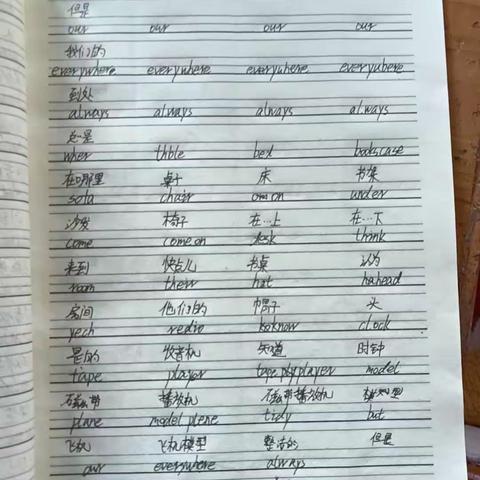 但是
our our our our
我们的
everywhere everywhere everywhere everywhere
到处
always always always always
总是
wher thble bed bookscase
在哪里 桌子 床 书架
sofa chair on under
沙发 椅子 在…上 在…下
come come on desk think
来到 快点儿 书桌 认为
room their hat hahead
房间 他们的 帽子 头
yech redio koknow clock
是的 收音机 知道 时钟
tape player tape player model
磁带 播放机 磁带播放机 模型
plane model plene tidy but
飞机 飞机模型 整洁的 但是
our everywhere always